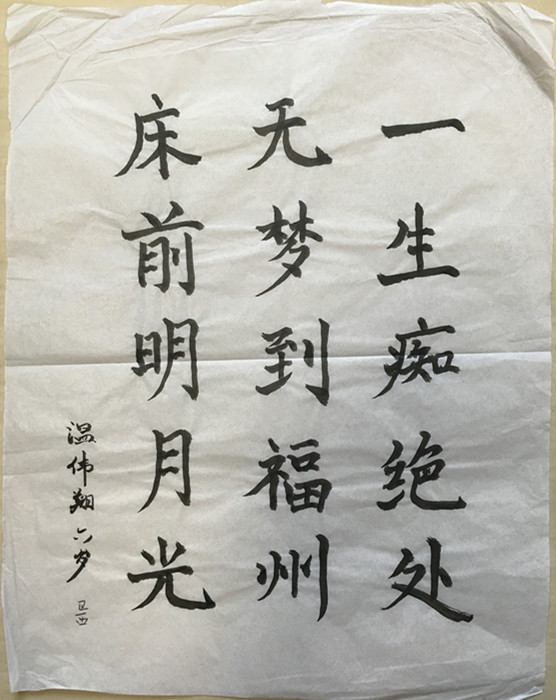 一生痴绝处
无梦到福州
床前明月光
温伟翔六岁